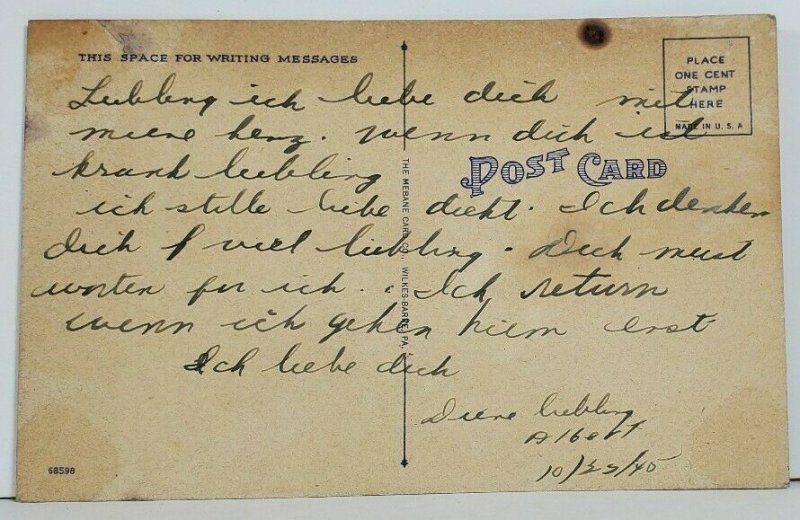 THIS SPACE FOR WRITING MESSAGES
PLACE
ONE CENT
STAMP
HERE
MADE IN U.S.A
Liebling ich liebe dich mit
miene herz. Wenn dich ist
krank liebling
POST CARD
ich stille liebe dicht. Ich denken
dich f viel liebling. Dich must
worten for ich. Ich return
wenn ich gehen hiem erst
Ich liebe dich
Diene liebling
Albert
10/22/45
THE MEBANE CARD CO., WILKES-BARRE, PA.
68598